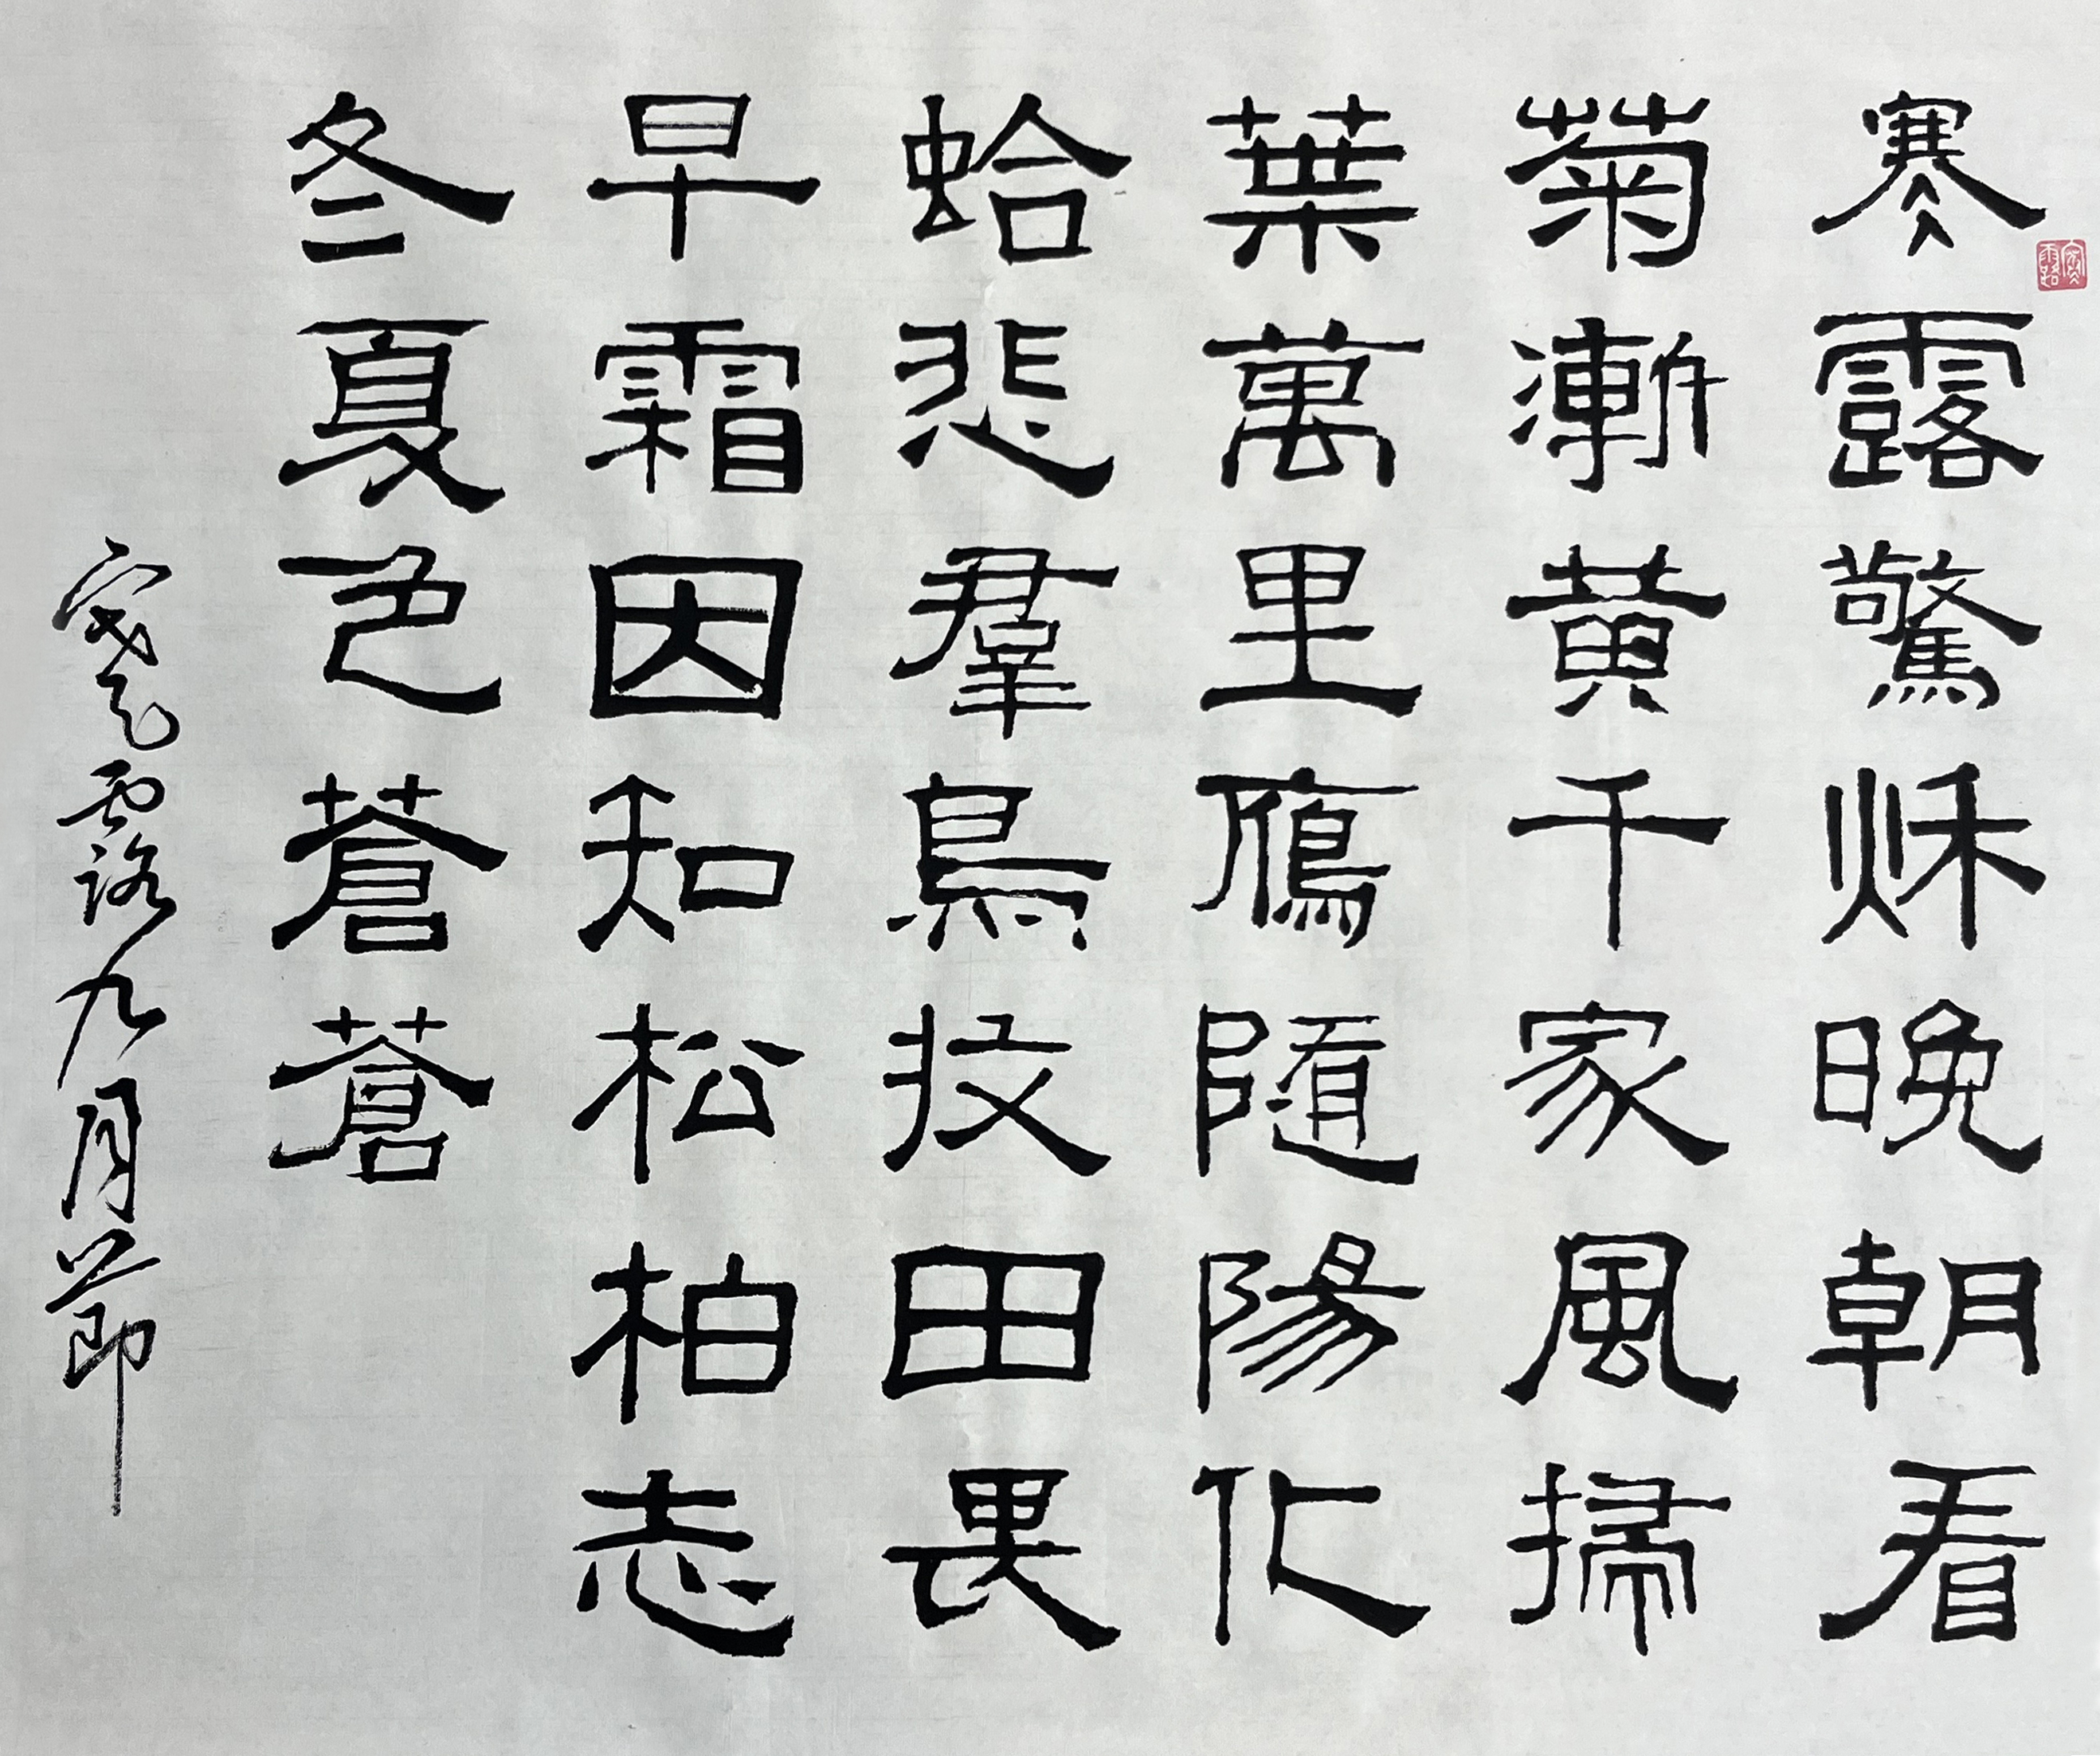 寒露驚秌晚朝看
菊漸黃千家風掃
葉萬里鴈隨陽化
蛤悲羣鳥收田畏
早霜因知松柏志
冬夏色蒼蒼
寒露九月節
寒露